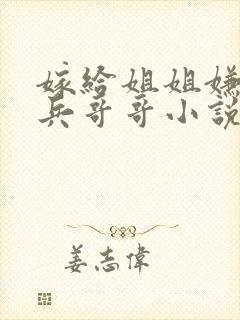 嫁給姐姐嫌
兵哥哥小說
姜志偉